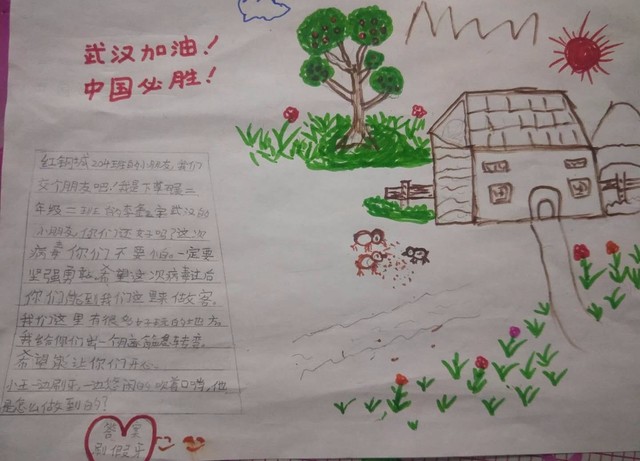 武汉加油！
中国必胜！
红钢城204班的小朋友，我们
交个朋友吧！我是下
年级二班的李 武汉的
小朋友，你们还好吗？这次
病毒你们不要怕。一定要
坚强勇敢。希望这次病毒过后
你们能到我们这里来做客。
我们这里有很多好玩的地方。
我给你们出一个脑筋急转弯。
希望能让你们开心。
小王一边刷牙，一边悠闲的吹着口哨，他
是怎么做到的？
答案
刷假牙